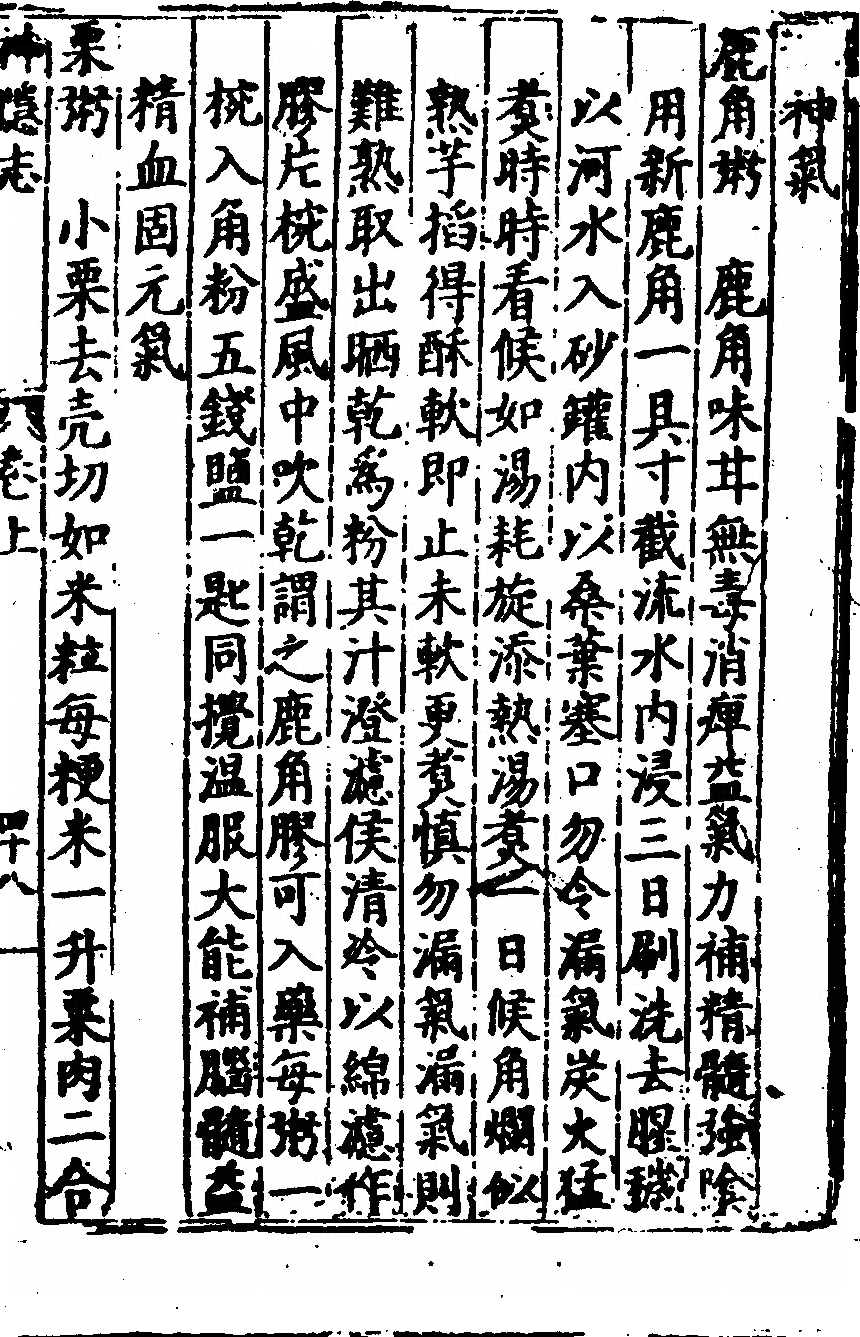 神氣
鹿角粥　鹿角味甘無毒消痺益氣力補精髓強陰
用新鹿角一具寸截流水內浸三日刷洗去腥穢
以河水入砂罐內以桑葉塞口勿令漏氣炭火猛
煑時時看候如湯耗旋添熱湯煑一日候角爛似
熟芋搯得酥軟即止未軟更煑慎勿漏氣漏氣則
難熟取出晒乾為粉其汁澄濾侯清冷以綿濾作
膠片椀盛風中吹乾謂之鹿角膠可入藥每粥一
椀入角粉五錢鹽一匙同攪溫服大能補腦髓益
精血固元氣
栗粥　小栗去壳切如米粒每粳米一升栗肉二合
神隱志　卷上　四十八